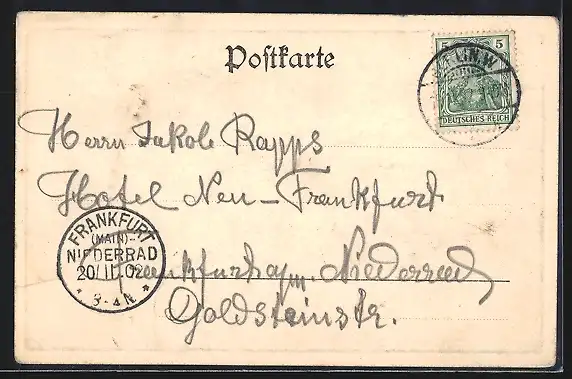 Postkarte
5 5
DEUTSCHES REICH
Herrn Jakob Rapps
Hotel Neu-Frankfurt
FRANKFURT
(MAIN)-
NIEDERRAD
20/II.02
3-4N
Frankfurt a/m. Niederrad
Goldsteinstr.